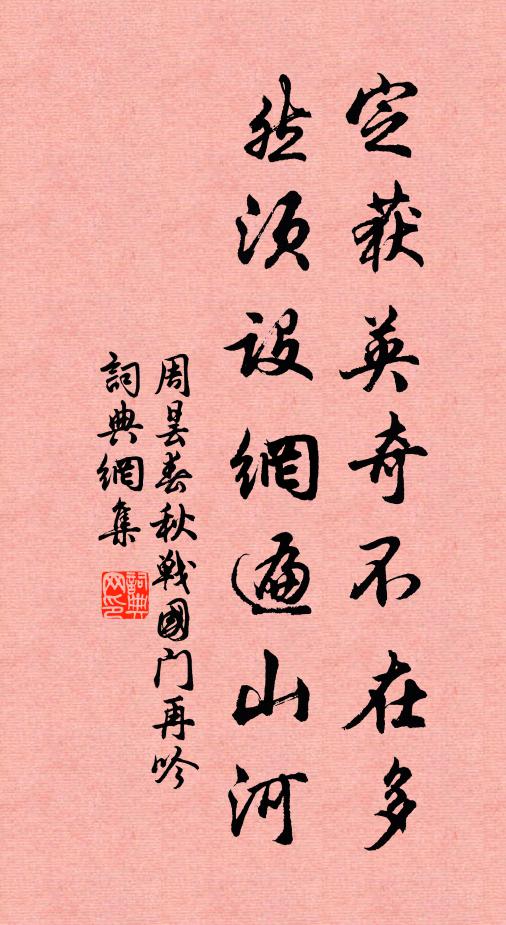 定获英奇不在多
然须设網遍山河
周昙春秋戦國门再吟
詞典網集
詞典
网印